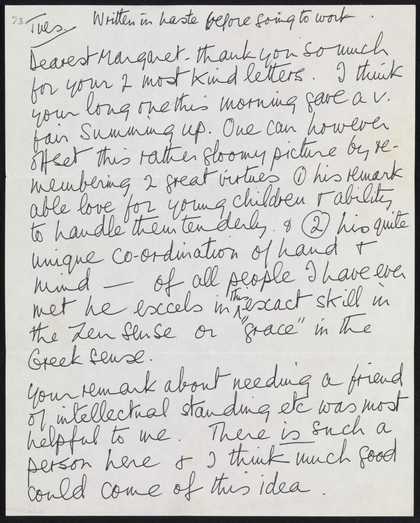 73
Tues. Written in haste before going to work.
Dearest Margaret - thank you so much
for your 2 most kind letters. I think
your long one this morning gave a v.
fair summing up. One can however
offset this rather gloomy picture by re-
membering 2 great virtues ① his remark
able love for young children & ability
to handle them tenderly. & ② his quite
unique co-ordination of hand &
mind — of all people I have ever
met he excels in the exact skill in
the Zen sense or "grace" in the
Greek sense.
Your remark about needing a friend
of intellectual standing etc was most
helpful to me. There is such a
person here & I think much good
could come of this idea.